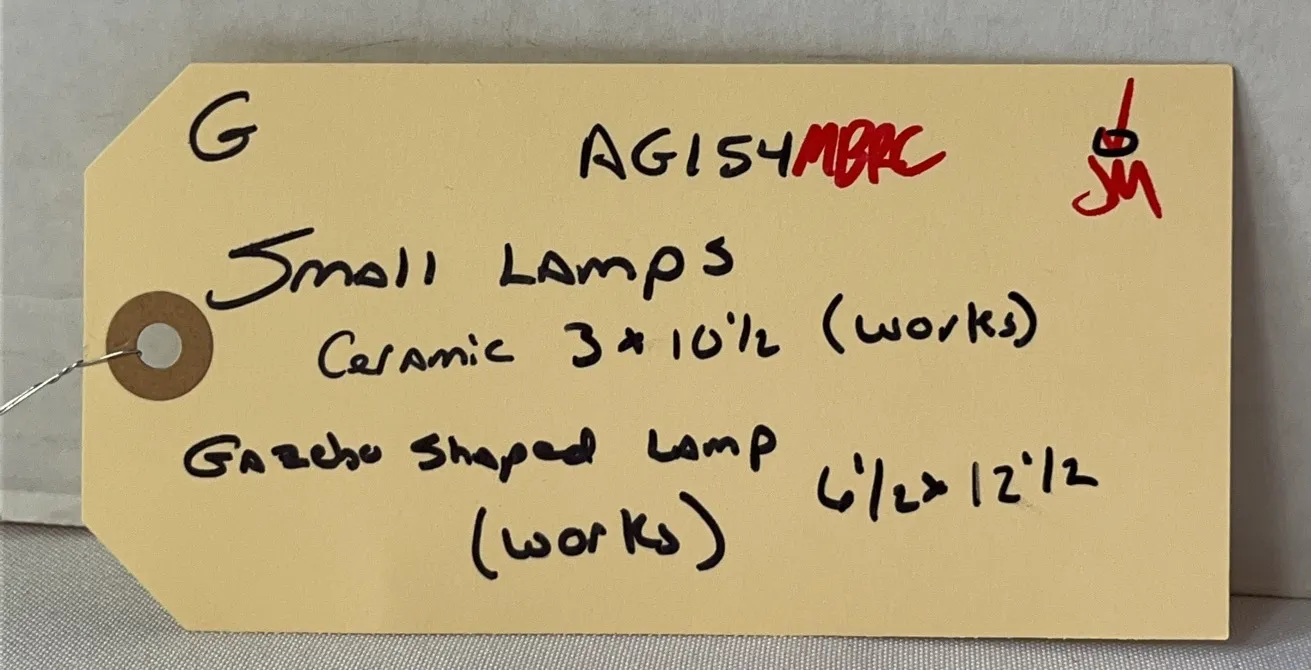 G AG154MBRC O
JM
Small Lamps
Ceramic 3 x 10 1/2 (works)
Gazebo Shaped Lamp 6 1/2 x 12 1/2
(works)